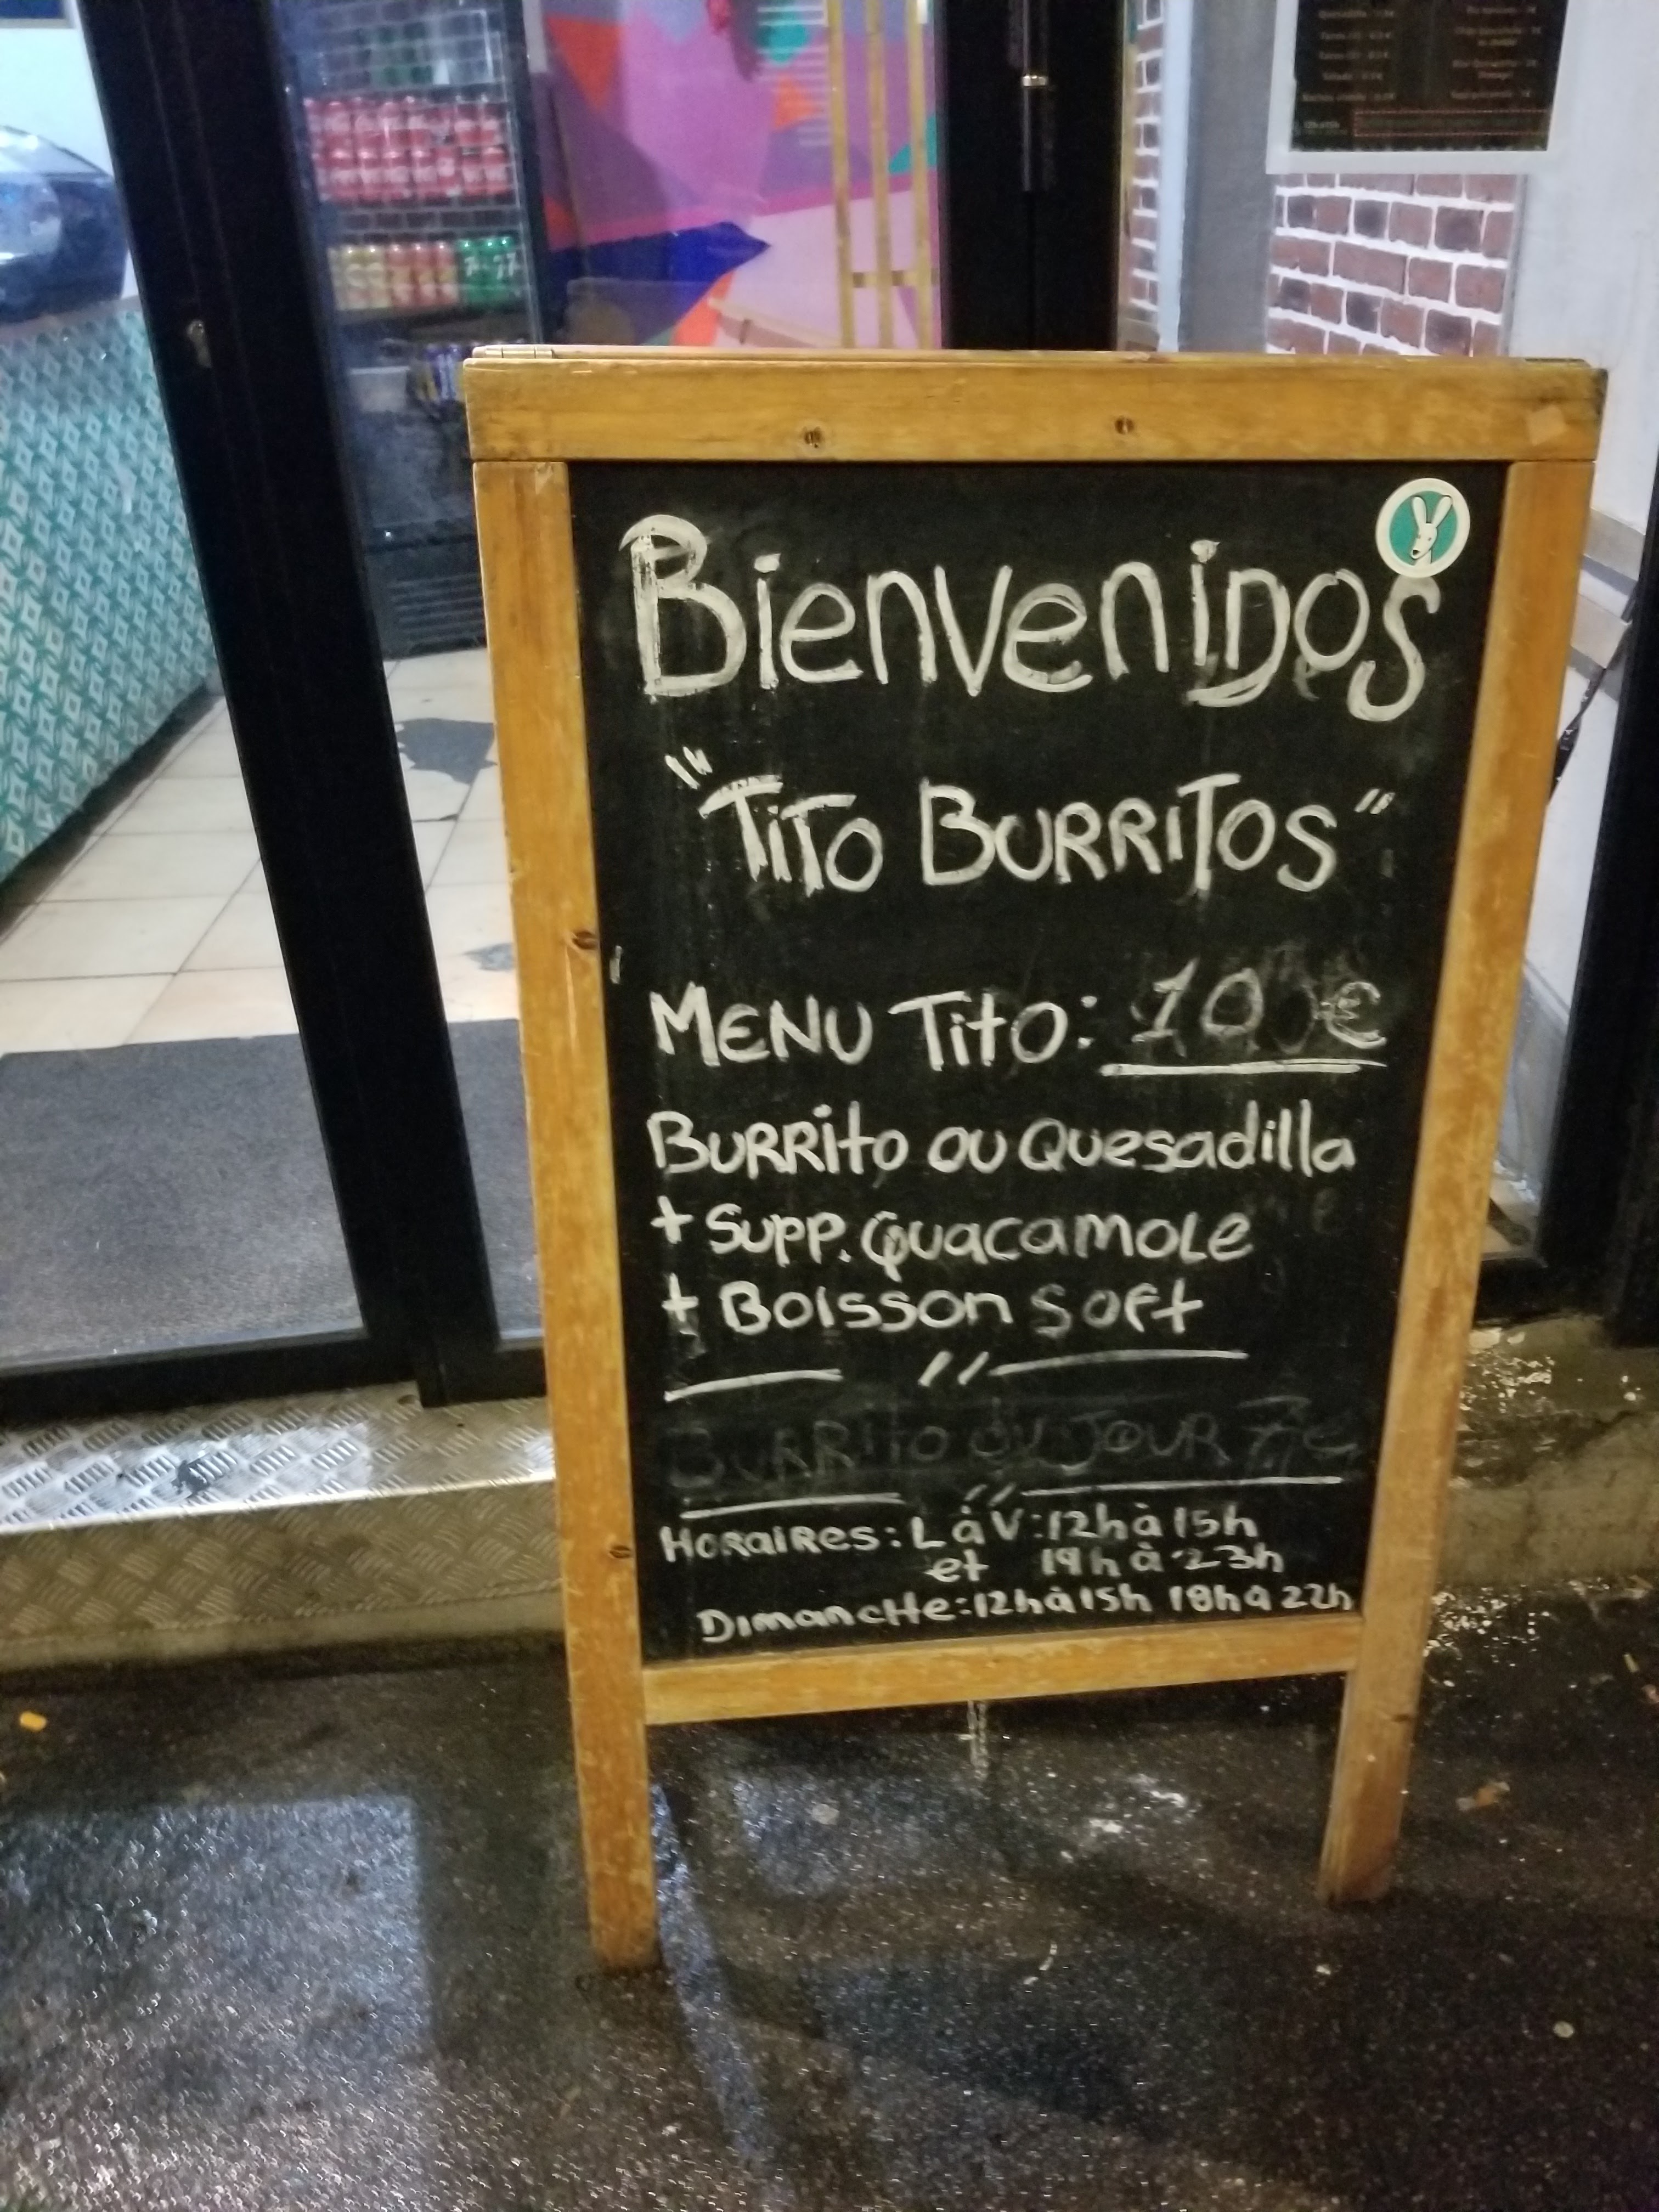 Bienvenidos
"Tito Burritos"
Menu Tito: 10 €
Burrito ou Quesadilla
+ Supp. Guacamole
+ Boisson Soft
//
Burrito du Jour 7 €
//
Horaires: L à V: 12h à 15h
et 19h à 23h
Dimanche: 12h à 15h 19h à 22h